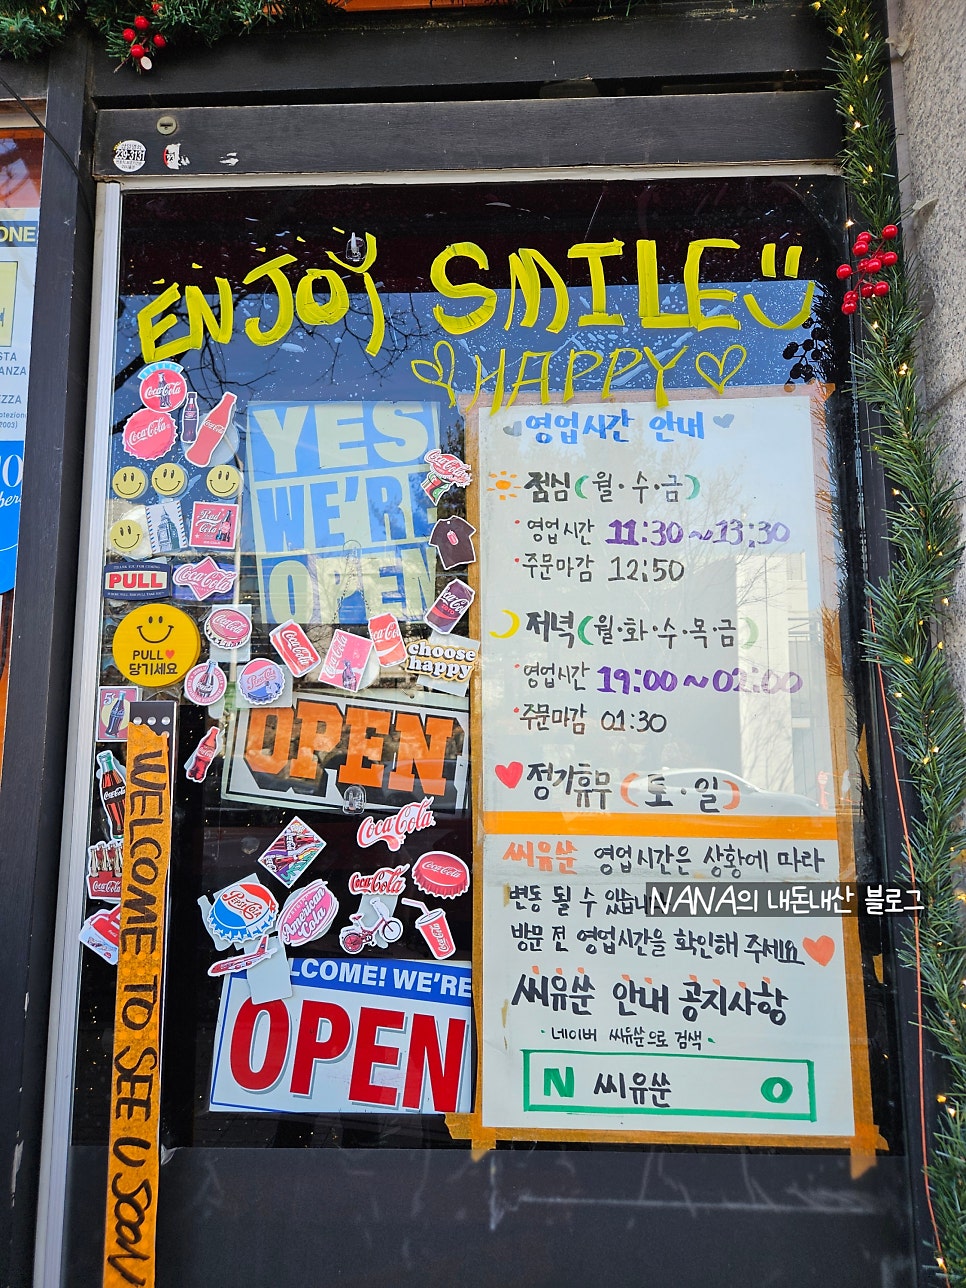 ENJOY SMILE
HAPPY
영업시간 안내
점심(월·수·금)
·영업시간 11:30~13:30
·주문마감 12:50
저녁(월·화·수·목·금)
·영업시간 19:00~02:00
·주문마감 01:30
정기휴무(토·일)
씨유쑨 영업시간은 상황에 따라
변동 될 수 있습니다
NANA의 내돈내산 블로그
방문 전 영업시간을 확인해 주세요
씨유쑨 안내 공지사항
·네이버 씨유쑨으로 검색·
N 씨유쑨
YES
WE'RE
OPEN
Coca-Cola
Coca-Cola
PULL
Coca-Cola
PULL
당기세요
Coca-Cola
Coca-Cola
Pepsi-Cola
choose
happy
OPEN
Coca-Cola
Coca-Cola
Coca-Cola
Pepsi-Cola
American
Cola
LCOME! WE'RE
OPEN
WELCOME TO SEE U SOON
239-3131
ONE